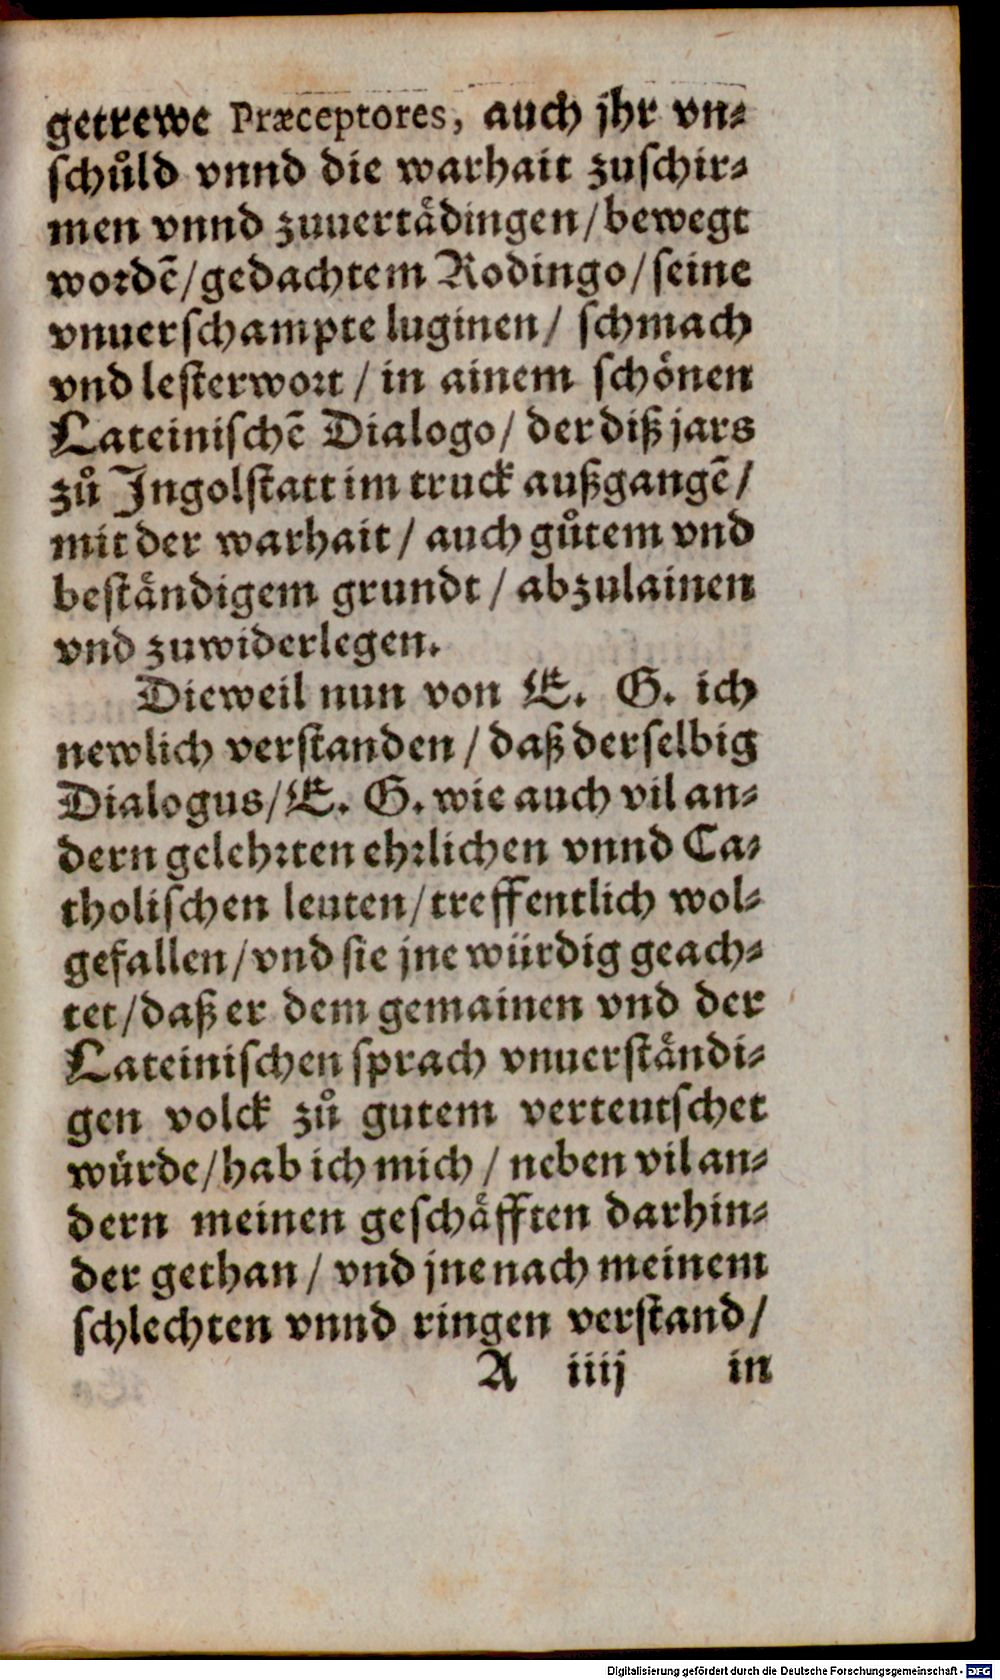 getrewe Præceptores, auch jhr vn-
schuͦld vnnd die warhait zuschir-
men vnnd zuuertaͤdingen/bewegt
wordē/gedachtem Rodingo/seine
vnuerschampte luginen/ schmach
vnd lesterwort / in ainem schoͤnen
Lateinischē Dialogo/ der diß jars
zuͦ Jngolstatt im truck außgangē/
mit der warhait / auch guͦtem vnd
bestaͤndigem grundt / abzulainen
vnd zuwiderlegen.
Dieweil nun von E. G. ich
newlich verstanden / daß derselbig
Dialogus/E. G. wie auch vil an-
dern gelehrten ehrlichen vnnd Ca-
tholischen leuten/treffentlich wol-
gefallen/vnd sie jne würdig geach-
tet/daß er dem gemainen vnd der
Lateinischen sprach vnuerstaͤndi-
gen volck zuͦ gutem verteutschet
wuͤrde/hab ich mich / neben vil an-
dern meinen geschaͤfften darhin-
der gethan / vnd jne nach meinem
schlechten vnnd ringen verstand/
A iiij in
Digitalisierung gefördert durch die Deutsche Forschungsgemeinschaft - DFG